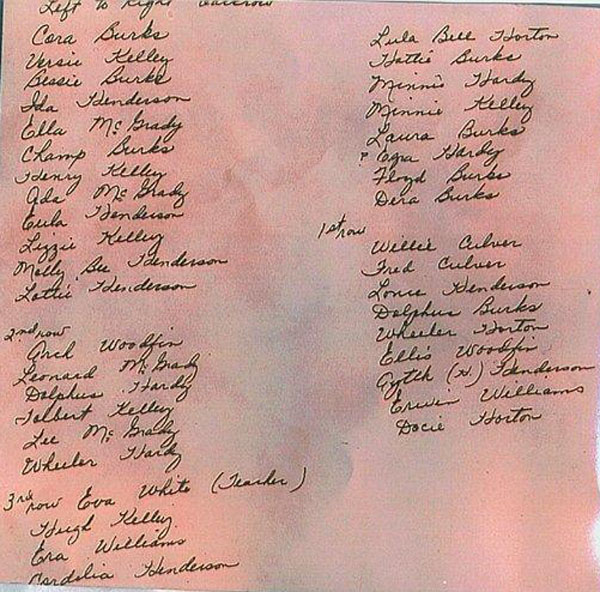 Left to Right
Cora Burks
Versie Kelley
Bessie Burks
Ida Henderson
Ella McGrady
Champ Burks
Henry Kelley
Ada McGrady
Eula Henderson
Lizzie Kelley
Molly Bee Henderson
Lottie Henderson
2nd row
Arch Woodfin
Leonard McGrady
Dolphus Hardy
Tolbert Kelley
Lee McGrady
Wheeler Hardy
3rd row Eva White (Teacher)
Hugh Kelley
Era Williams
Cordelia Henderson
Lula Bell Horton
Hattie Burks
Minnie Hardy
Minnie Kelley
Laura Burks
? Ezra Hardy
Floyd Burks
Dera Burks
1st row
Willie Culver
Fred Culver
Lonie Henderson
Dolphus Burks
Wheeler Horton
Ellis Woodfin
(H.) Henderson
Erwin Williams
Docie Horton